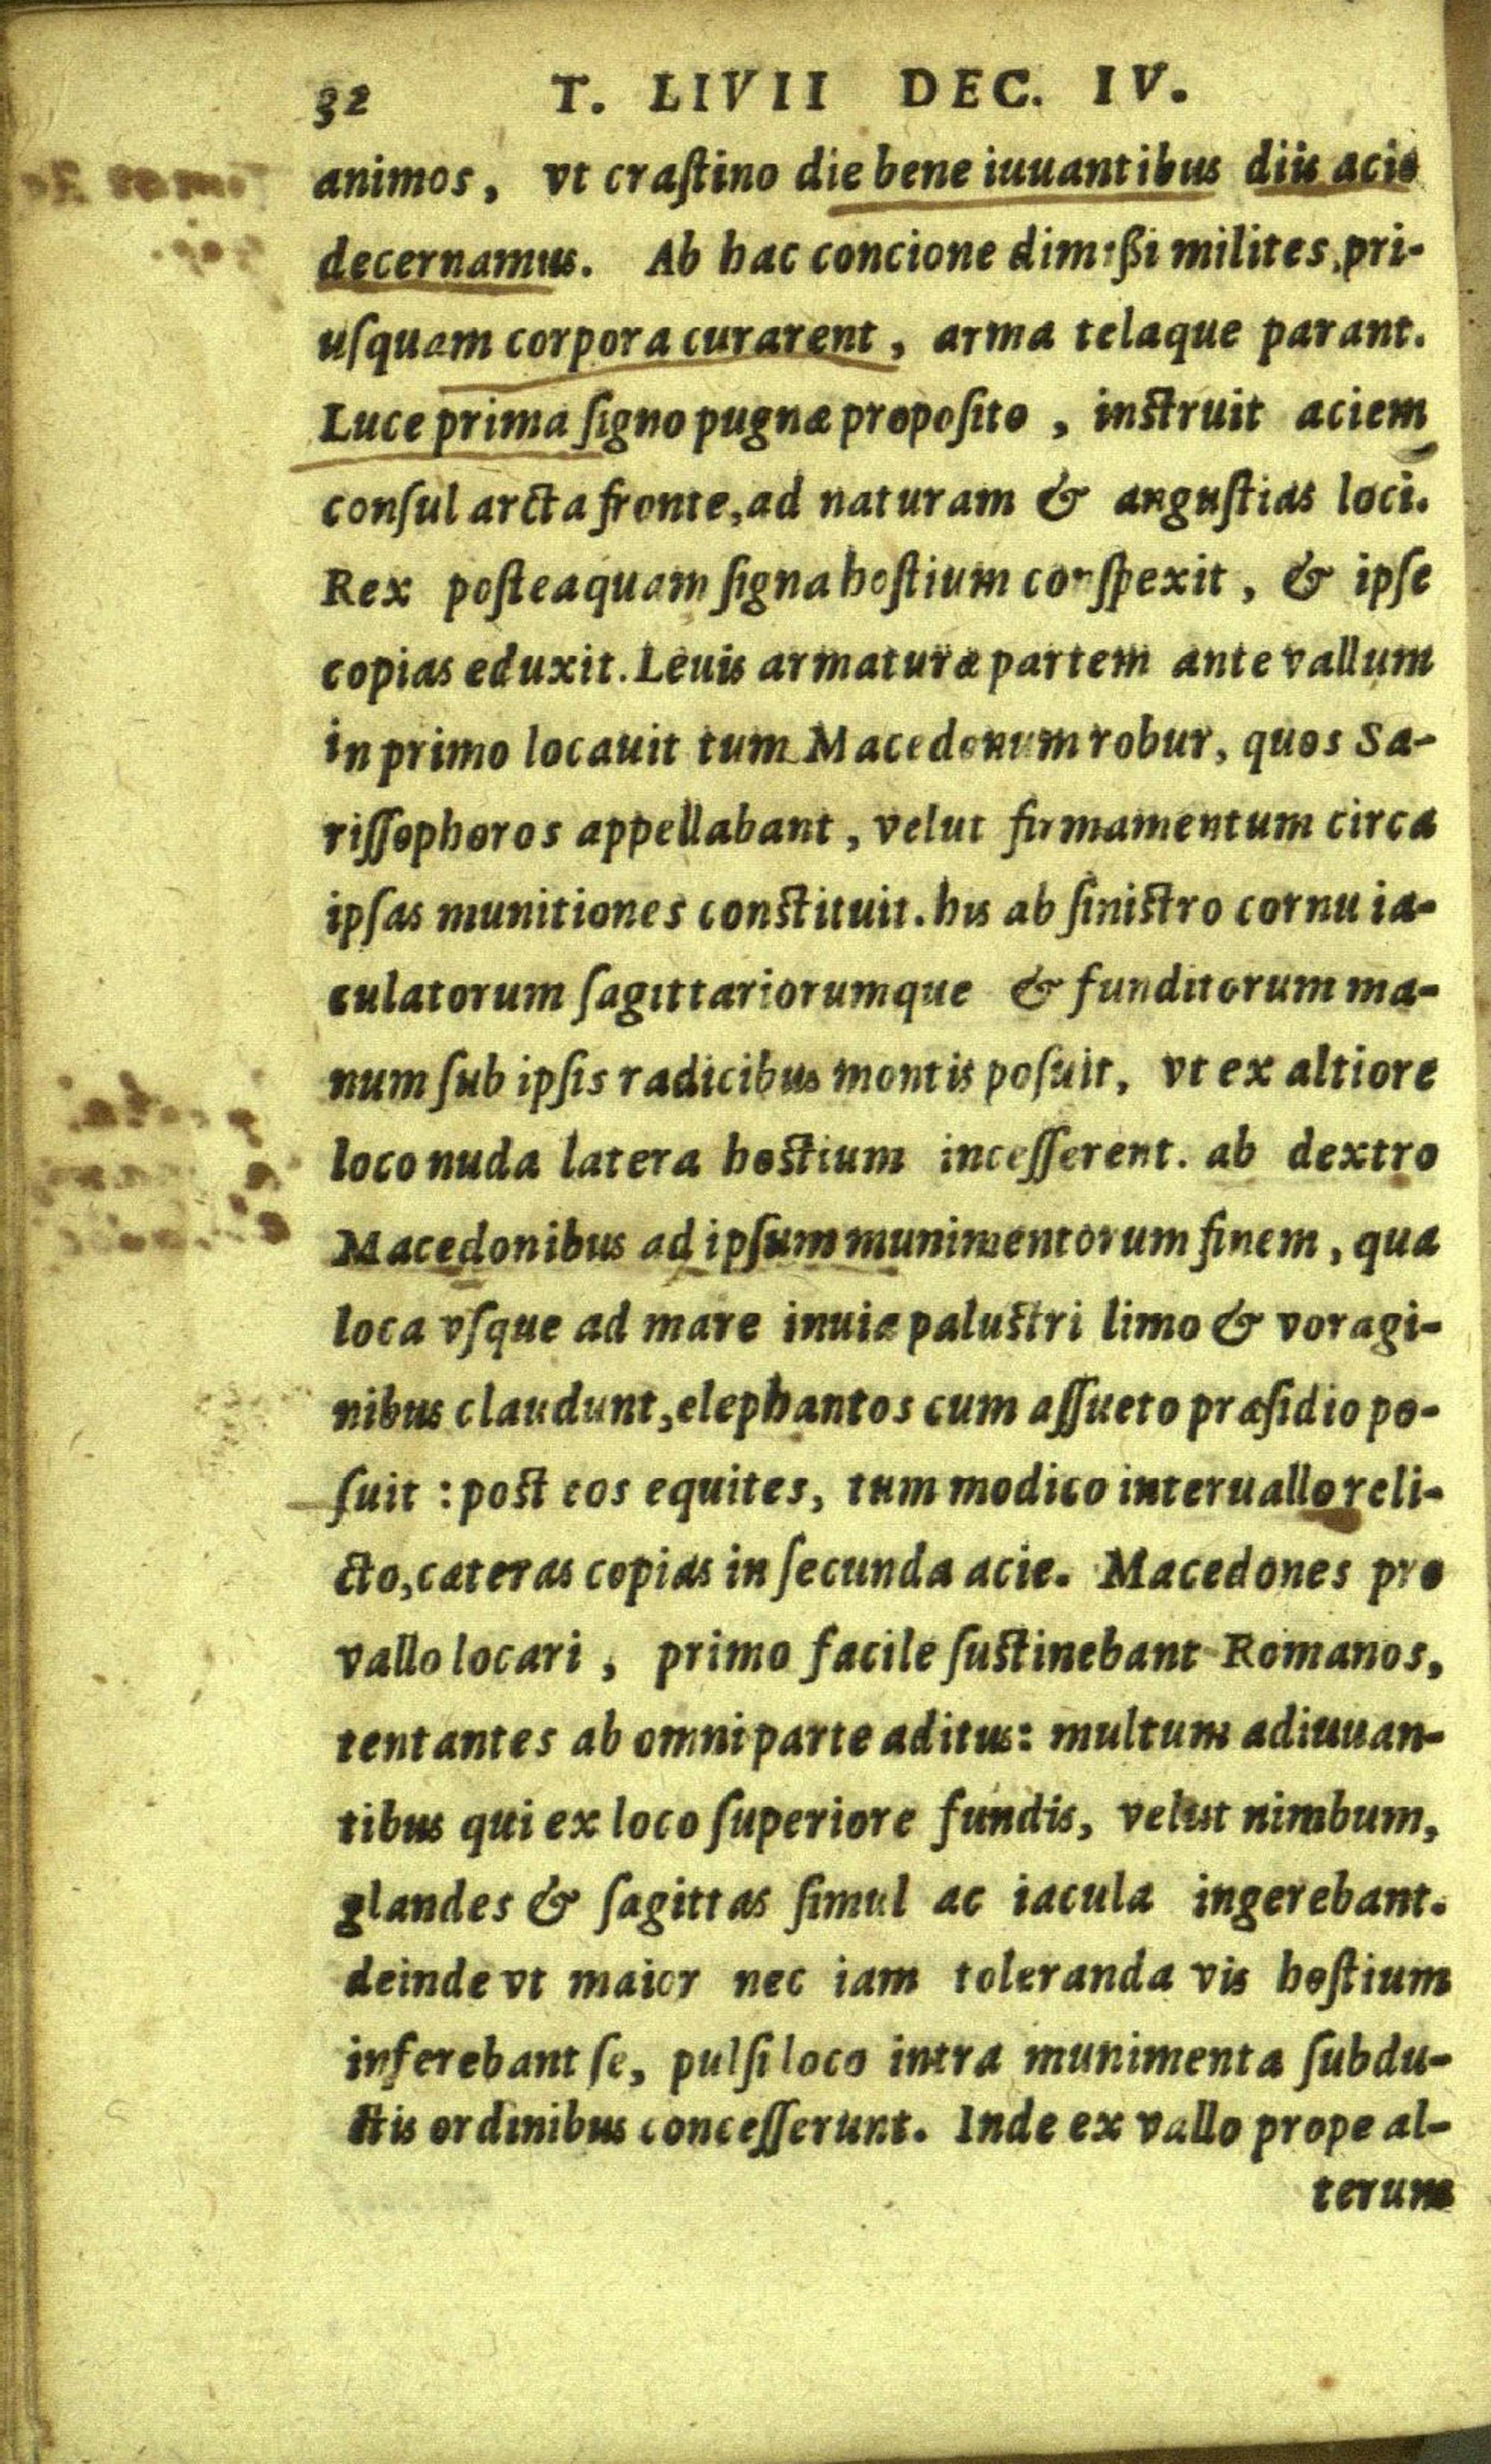 32 T. LIVII DEC. IV.
animos, vt craſtino die bene iuuantibus diis acie
decernamus. Ab hac concione dimißi milites, pri-
uſquam corpora curarent, arma telaque parant.
Luce prima ſigno pugnæ propoſito, inſtruit aciem
conſul arcta fronte, ad naturam & anguſtias loci.
Rex poſteaquam ſigna hoſtium conſpexit, & ipſe
copias eduxit. Leuis armaturæ partem ante vallum
in primo locauit tum Macedonum robur, quos Sa-
riſſophoros appellabant, velut firmamentum circa
ipſas munitiones conſtituit. his ab ſiniſtro cornu ia-
culatorum ſagittariorumque & funditorum ma-
num ſub ipſis radicibus montis poſuit, vt ex altiore
loco nuda latera hoſtium inceſſerent. ab dextro
Macedonibus ad ipſum munimentorum finem, qua
loca vſque ad mare inuia paluſtri limo & voragi-
nibus claudunt, elephantos cum aſſueto præſidio po-
ſuit: poſt eos equites, tum modico interuallo reli-
cto, cæteras copias in ſecunda acie. Macedones pro
vallo locari, primo facile ſuſtinebant Romanos,
tentantes ab omni parte aditus: multum adiuuan-
tibus qui ex loco ſuperiore fundis, velut nimbum,
glandes & ſagittas ſimul ac iacula ingerebant.
deinde vt maior nec iam toleranda vis hoſtium
inferebant ſe, pulſi loco intra munimenta ſubdu-
ctis ordinibus conceſſerunt. Inde ex vallo prope al-
terum